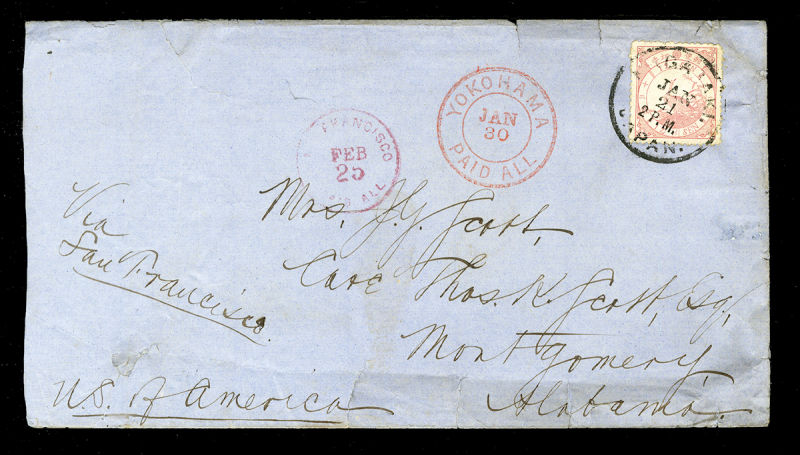 NAGASAKI
JAN
21
2 P.M.
JAPAN.
YOKOHAMA
JAN
30
PAID ALL
FRANCISCO
FEB
25
ALL
Mrs, J. J. Scott,
Care Thos. K. Scott, Esq,
Montgomery,
Alabama.
Via
San Francisco.
U.S. of America